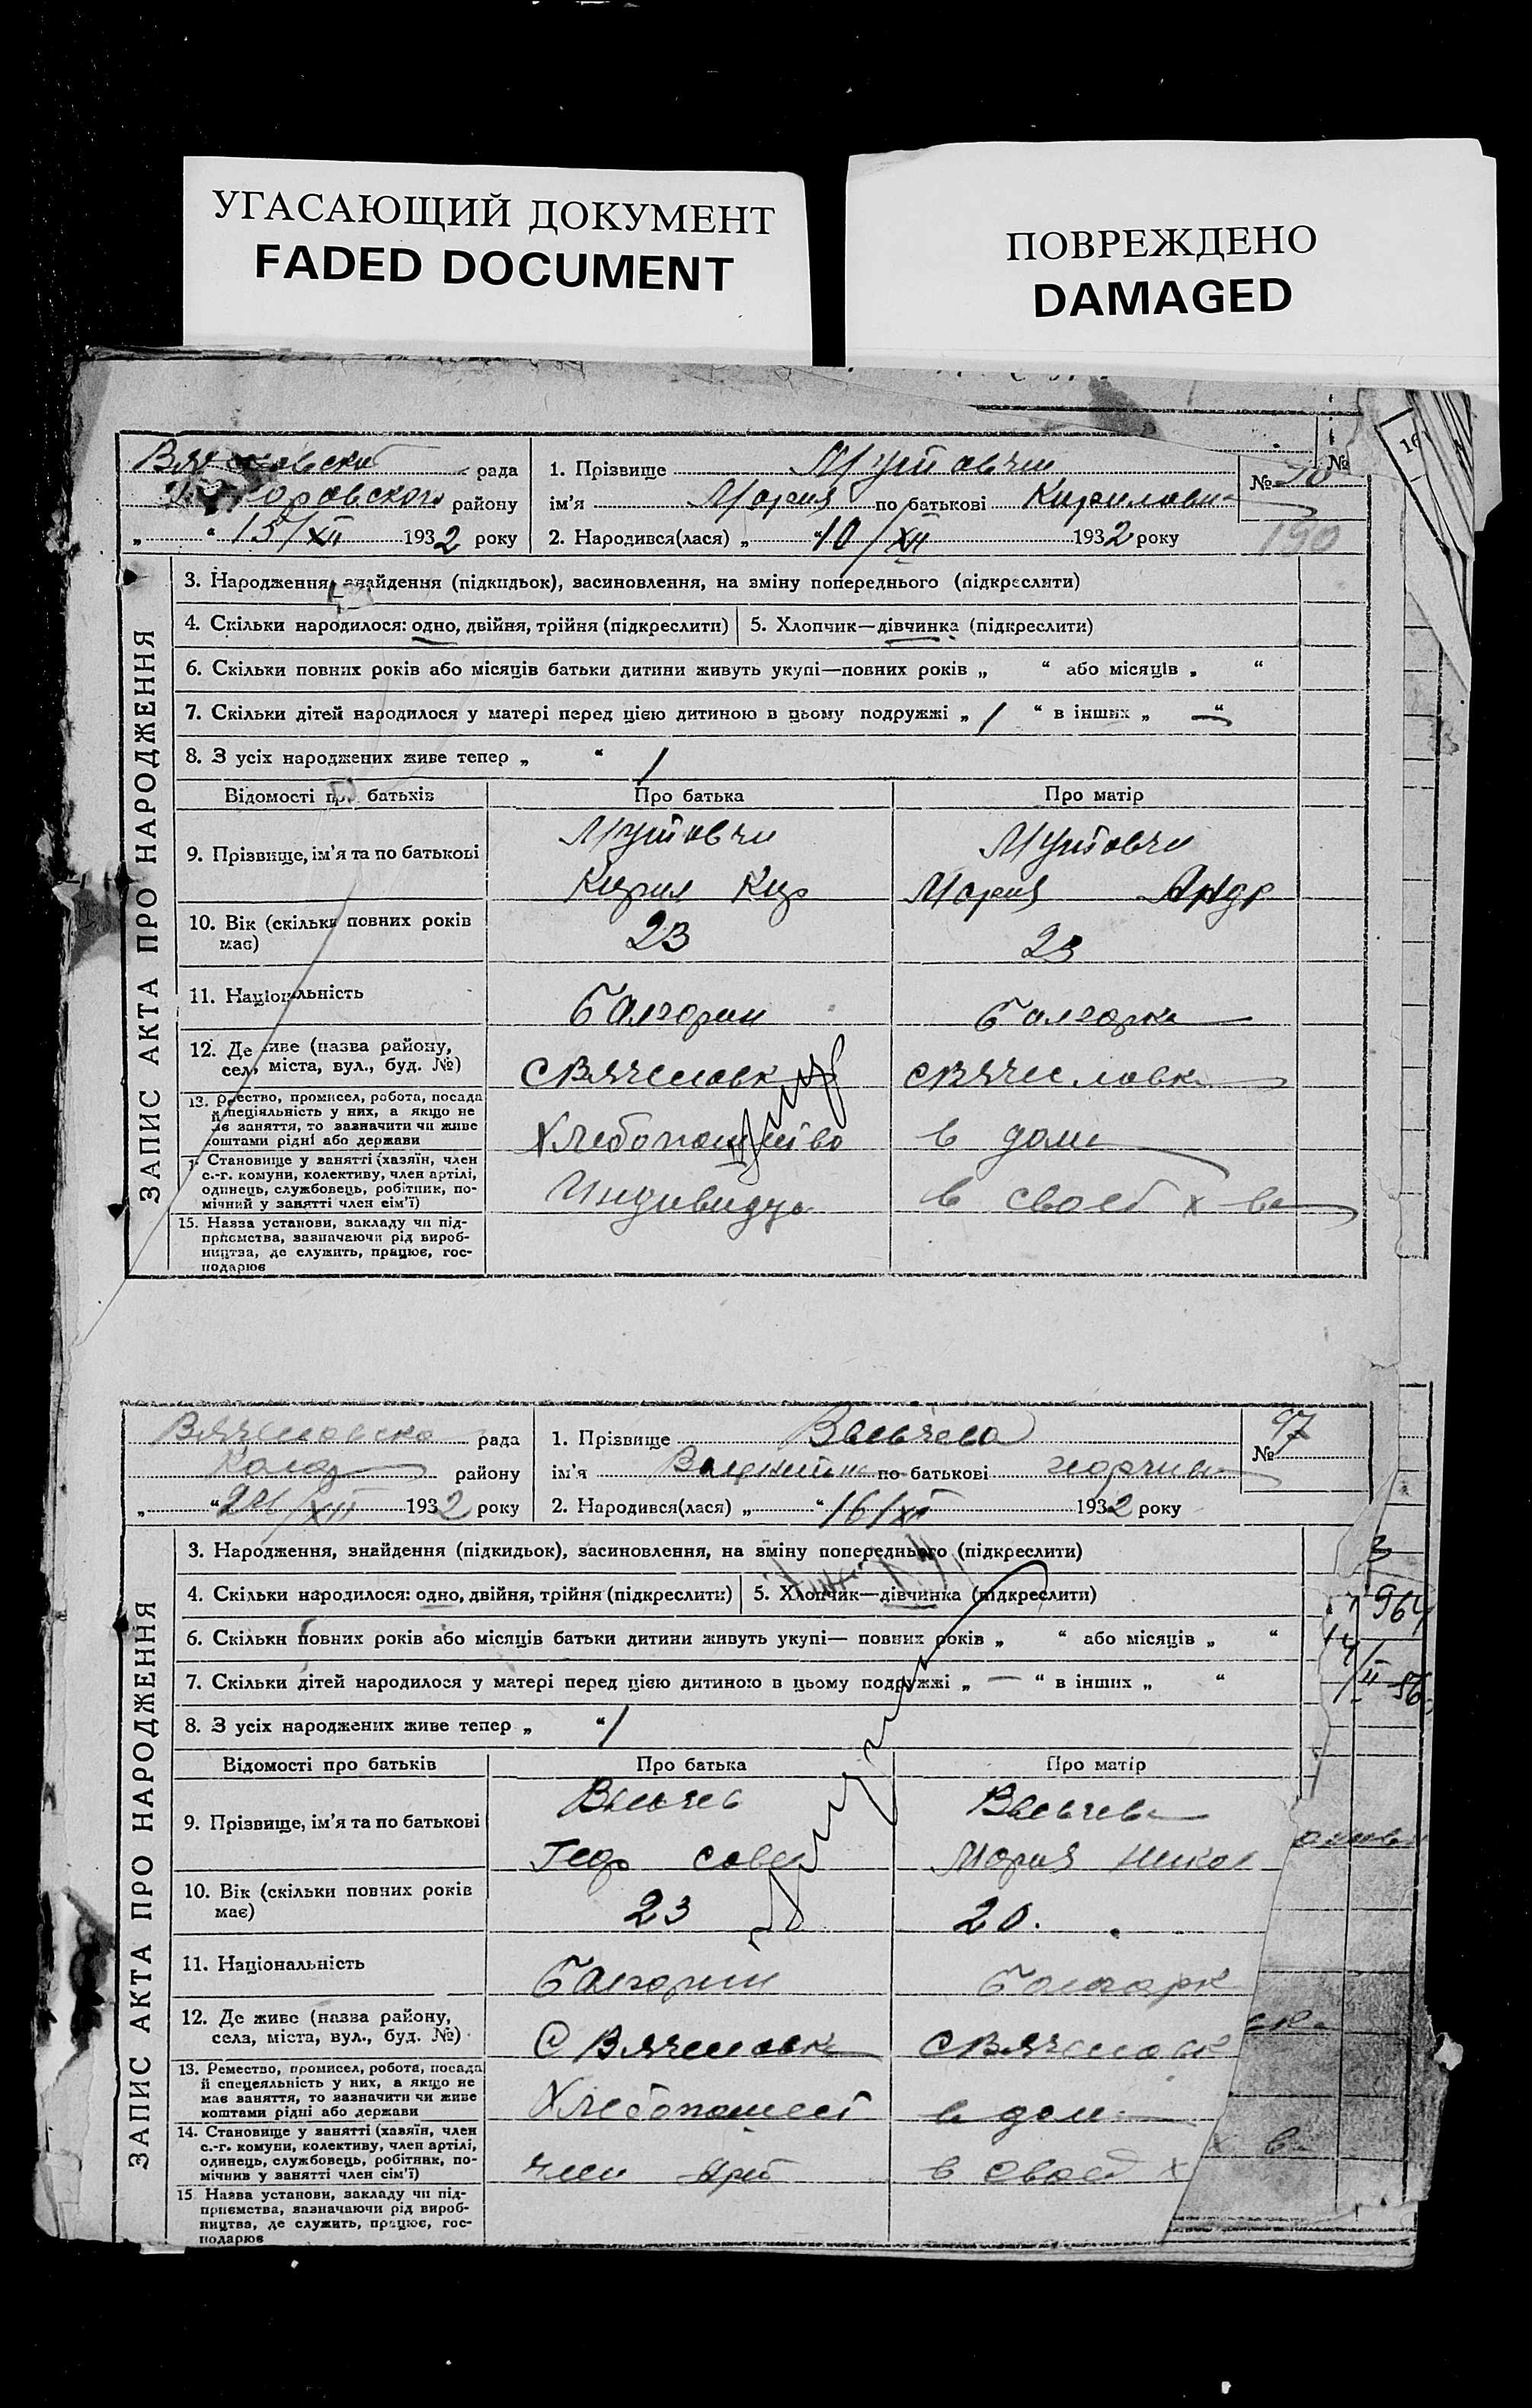 УГАСАЮЩИЙ ДОКУМЕНТ
FADED DOCUMENT
ПОВРЕЖДЕНО
DAMAGED
рада
району
„ “ 15/XII 1932 року
1. Прізвище
ім’я Мария по батькові Кириловн
2. Народився(лася) „ “ 10/XII 1932 року
№
№
190
ЗАПИС АКТА ПРО НАРОДЖЕННЯ
3. Народження, знайдення (підкидьок), засиновлення, на зміну попереднього (підкреслити)
4. Скільки народилося: одно, двійня, трійня (підкреслити)
5. Хлопчик—дівчинка (підкреслити)
6. Скільки повних років або місяців батьки дитини живуть укупі—повних років „ “ або місяців „ “
7. Скільки дітей народилося у матері перед цією дитиною в цьому подружжі „ 1 “ в інших „ — “
8. З усіх народжених живе тепер „ “ 1
Відомості про батьків
Про батька
Про матір
9. Прізвище, ім’я та по батькові
Кирил Кир
Мария Андр
10. Вік (скільки повних років
має)
23
23
11. Національність
Болгарин
Болгарка
12. Де живе (назва району,
села, міста, вул., буд. №)
С Вячеславк
С Вячеславк
13. Ремество, промисел, робота, посада
й спеціяльність у них, а якщо не
має заняття, то зазначити чи живе
коштами рідні або держави
Хлебопашество
в доме
14. Становище у занятті (хазяїн, член
с.-г. комуни, колективу, член артілі,
одинець, службовець, робітник, по-
мічний у занятті член сім’ї)
Индивидуа
в своей х-ве
15. Назва установи, закладу чи під-
приємства, зазначаючи рід вироб-
ництва, де служить, працює, гос-
подарює
Вячеславско рада
Колар району
„ “ /XII 1932 року
1. Прізвище Вельчева
ім’я Валентин по батькові
2. Народився(лася) „ “ 16/XII 1932 року
97
№
ЗАПИС АКТА ПРО НАРОДЖЕННЯ
3. Народження, знайдення (підкидьок), засиновлення, на зміну попереднього (підкреслити)
4. Скільки народилося: одно, двійня, трійня (підкреслити)
5. Хлопчик—дівчинка (підкреслити)
6. Скільки повних років або місяців батьки дитини живуть укупі— повних років „ “ або місяців „ “
7. Скільки дітей народилося у матері перед цією дитиною в цьому подружжі „ — “ в інших „ “
8. З усіх народжених живе тепер „ “ 1
Відомості про батьків
Про батька
Про матір
9. Прізвище, ім’я та по батькові
Вельчев
Вельчева
Геор Саве
Мария Никол
10. Вік (скільки повних років
має)
23
20.
11. Національність
Болгарин
Болгарк
12. Де живе (назва району,
села, міста, вул., буд. №)
С Вячеславк
С Вячеславк
13. Ремество, промисел, робота, посада
й спецеяльність у них, а якщо не
має заняття, то зазначити чи живе
коштами рідні або держави
Хлебопашест
в дом
14. Становище у занятті (хазяїн, член
с.-г. комуни, колективу, член артілі,
одинець, службовець, робітник, по-
мічний у занятті член сім’ї)
член Арт
в своей х
15 Назва установи, закладу чи під-
приємства, зазначаючи рід вироб-
ництва, де служить, працює, гос-
подарює